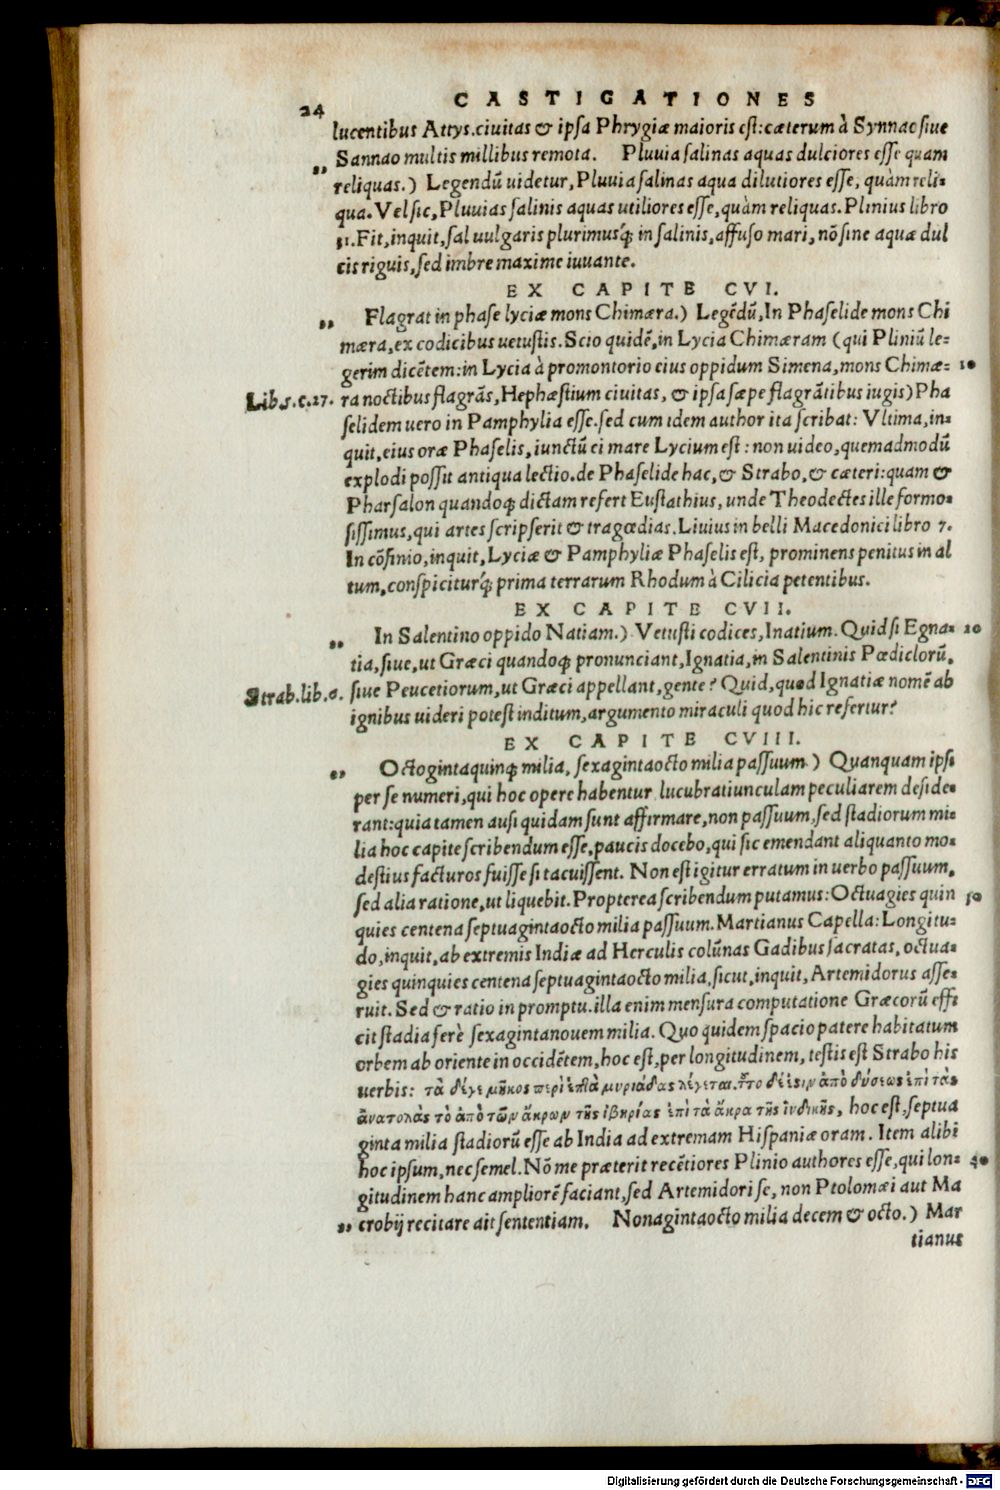 24 CASTIGATIONES
lucentibus Attys.ciuitas & ipsa Phrygiæ maioris est:cæterum à Synnae siue
Sannao multis millibus remota. Pluuia salinas aquas dulciores esse quam
reliquas.) Legendū uidetur, Pluuia salinas aqua dilutiores esse, quàm reli-
qua. Vel sic, Pluuias salinis aquas utiliores esse, quàm reliquas. Plinius libro
31. Fit, inquit, sal uulgaris plurimusq́; in salinis, affuso mari, nō sine aquæ dul
cis riguis, sed imbre maxime iuuante.
EX CAPITE CVI.
„ Flagrat in phase lyciæ mons Chimæra.) Legēdū, In Phaselide mons Chi
mæra, ex codicibus uetustis. Scio quidē, in Lycia Chimæram (qui Pliniū le-
gerim dicētem: in Lycia à promontorio eius oppidum Simena, mons Chimæ- 10
Lib.5.c.27. ra noctibus flagrãs, Hephæstium ciuitas, & ipsa sæpe flagrãtibus iugis) Pha
selidem uero in Pamphylia esse. sed cum idem author ita scribat: Vltima, in-
quit, eius oræ Phaselis, iunctū ei mare Lycium est: non uideo, quemadmodū
explodi possit antiqua lectio. de Phaselide hac, & Strabo, & cæteri: quam &
Pharsalon quandoq; dictam refert Eustathius, unde Theodectes ille formo-
sissimus, qui artes scripserit & tragœdias. Liuius in belli Macedonici libro 7.
In cōfinio, inquit, Lyciæ & Pamphyliæ Phaselis est, prominens penitus in al
tum, conspiciturq́; prima terrarum Rhodum à Cilicia petentibus.
EX CAPITE CVII.
„ In Salentino oppido Natiam.) Vetusti codices, Inatium. Quid si Egna- 20
tia, siue, ut Græci quandoq; pronunciant, Ignatia, in Salentinis Pœdiclorū,
Strab.lib.6. siue Peucetiorum, ut Græci appellant, gente? Quid, quod Ignatiæ nomē ab
ignibus uideri potest inditum, argumento miraculi quod hic refertur?
EX CAPITE CVIII.
„ Octogintaquinq; milia, sexagintaocto milia passuum.) Quanquam ipsi
per se numeri, qui hoc opere habentur, lucubratiunculam peculiarem deside-
rant: quia tamen ausi quidam sunt affirmare, non passuum, sed stadiorum mi-
lia hoc capite scribendum esse, paucis docebo, qui sic emendant aliquanto mo-
destius facturos fuisse si tacuissent. Non est igitur erratum in uerbo passuum,
sed alia ratione, ut liquebit. Propterea scribendum putamus: Octuagies quin 30
quies centena septuagintaocto milia passuum. Martianus Capella: Longitu-
do, inquit, ab extremis Indiæ ad Herculis colūnas Gadibus sacratas, octua-
gies quinquies centena septuagintaocto milia, sicut, inquit, Artemidorus asse-
ruit. Sed & ratio in promptu. illa enim mensura computatione Græcorū effi
cit stadia ferè sexagintanouem milia. Quo quidem spacio patere habitatum
orbem ab oriente in occidētem, hoc est, per longitudinem, testis est Strabo his
uerbis: τὰ δέγε μῆκος περὶ ἑπτὰ μυριάδας λέγεται. τ̃το δέ ἐσιν ἀπὸ δύσεως ἐπὶ τὰς
ἀνατολὰς τὸ ἀπὸ τῶν ἄκρων τῆς ἰβηρίας ἐπὶ τὰ ἄκρα τῆς ἰνδικῆς, hoc est, septua
ginta milia stadiorū esse ab India ad extremam Hispaniæ oram. Item alibi
hoc ipsum, nec semel. Nō me præterit recētiores Plinio authores esse, qui lon- 40
gitudinem hanc ampliorē faciant, sed Artemidori se, non Ptolomæi aut Ma
„ crobij recitare ait sententiam. Nonagintaocto milia decem & octo.) Mar
tianus
Digitalisierung gefördert durch die Deutsche Forschungsgemeinschaft - DFG